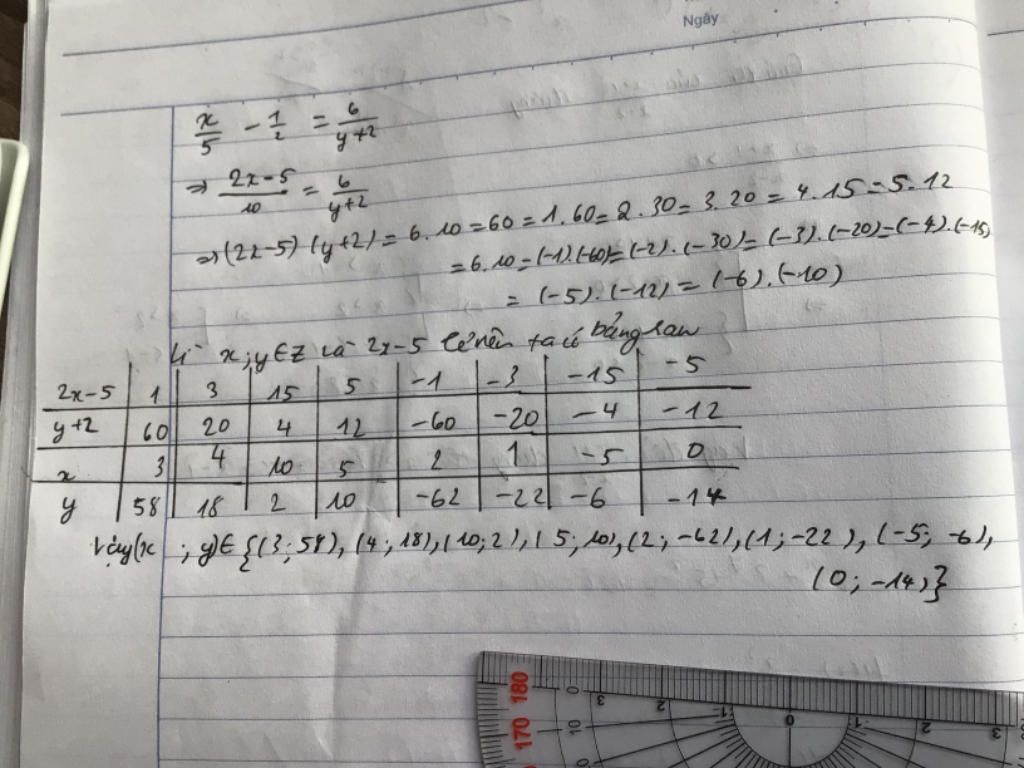 Ngày
x/5 - 1/2 = 6/(y+2)
=> (2x-5)/10 = 6/(y+2)
=> (2x-5)(y+2) = 6.10 = 60 = 1.60 = 2.30 = 3.20 = 4.15 = 5.12
= 6.10 = (-1).(-60) = (-2).(-30) = (-3).(-20) = (-4).(-15)
= (-5).(-12) = (-6).(-10)
Vì x; y ∈ Z và 2x-5 lẻ nên ta có bảng sau
2x-5 1 3 15 5 -1 -3 -15 -5
y+2 60 20 4 12 -60 -20 -4 -12
x 3 4 10 5 2 1 -5 0
y 58 18 2 10 -62 -22 -6 -14
Vậy (x; y) ∈ {(3; 58), (4; 18), (10; 2), (5; 10), (2; -62), (1; -22), (-5; -6),
(0; -14)}
180 0 3 2 1 0 1 2 3
170 10